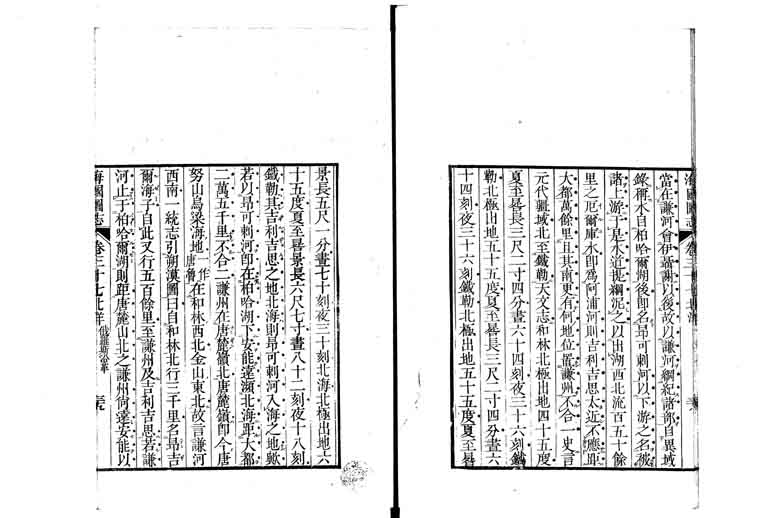 當在謙河會伊聶謝以後故以謙河綱紀諸部自異域
錄稱水自柏哈爾湖後即名昂可剌河以下游之名被
諸上游于是水道提綱泥之以出湖西北流百五十餘
里之厄爾庫水即為阿浦河則吉利吉思太近不應距
大都萬餘里且其南更有何地位置謙州不合一史言
元代疆域北至鐵勒天文志和林北極出地四十五度
夏至晷長三尺二寸四分晝六十四刻夜三十六刻鐵
勒北極出地五十五度夏至晷長三尺二寸四分晝六
十四刻夜三十六刻鐵勒北極出地五十五度夏至晷
景長五尺一分晝七十刻夜三十刻北海北極出地六
十五度夏至晷景長六尺七寸晝八十二刻夜十八刻
鐵勒其吉利吉思之地北海則昂可剌河入海之地歟
若以昂可剌河即在柏哈湖下安能遠瀕北海距大都
二萬五千里不合二謙州在唐麓嶺北唐麓嶺即今唐
努山烏梁海地一作唐魯在和林西北金山東北故言謙河
西南一統志引朔漠圖曰自和林北行三千里名昂吉
爾海子自此又行五百餘里至謙州及吉利吉思若謙
河止于柏哈爾湖則距唐麓山北之謙州尚遠安能以
海國圖志 卷三十七北洋 俄羅斯沿革